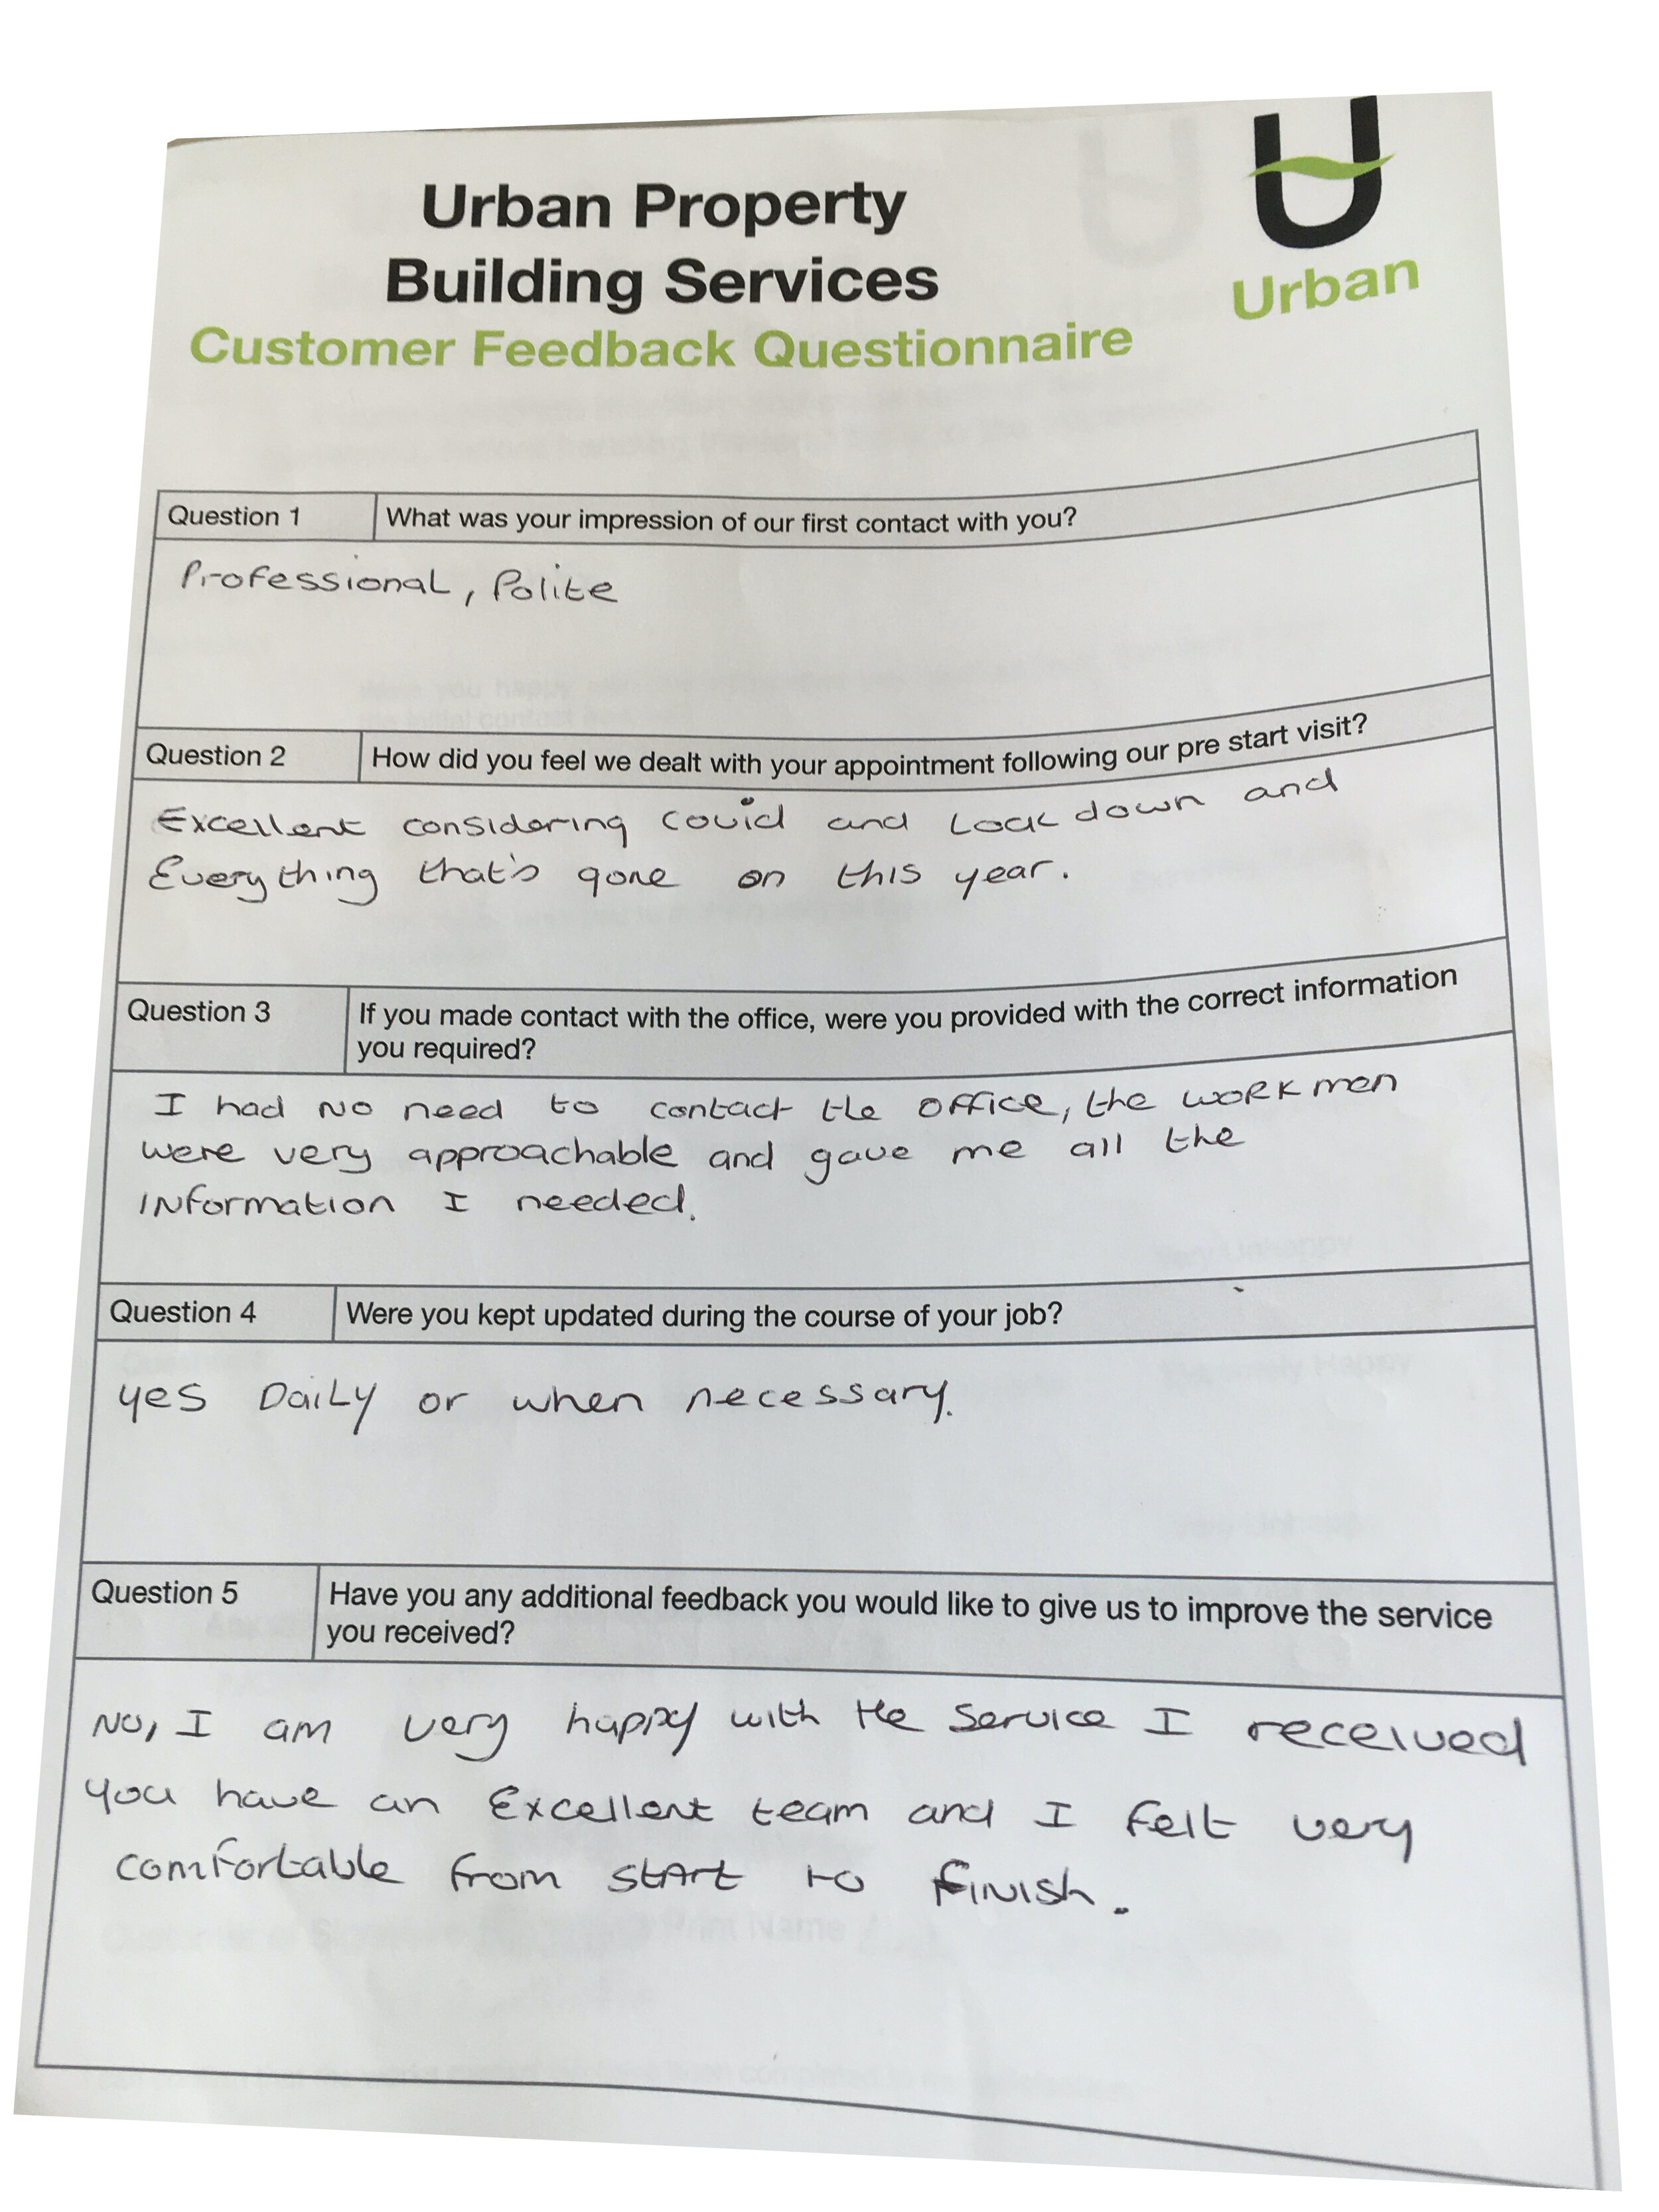 Urban Property
Building Services
Customer Feedback Questionnaire
Urban
Question 1 What was your impression of our first contact with you?
Professional, Polite
Question 2 How did you feel we dealt with your appointment following our pre start visit?
Excellent considering covid and Lockdown and
Everything that's gone on this year.
Question 3 If you made contact with the office, were you provided with the correct information
you required?
I had no need to contact the office, the workmen
were very approachable and gave me all the
information I needed.
Question 4 Were you kept updated during the course of your job?
yes Daily or when necessary.
Question 5 Have you any additional feedback you would like to give us to improve the service
you received?
No, I am very happy with the service I received
you have an Excellent team and I felt very
comfortable from start to finish.